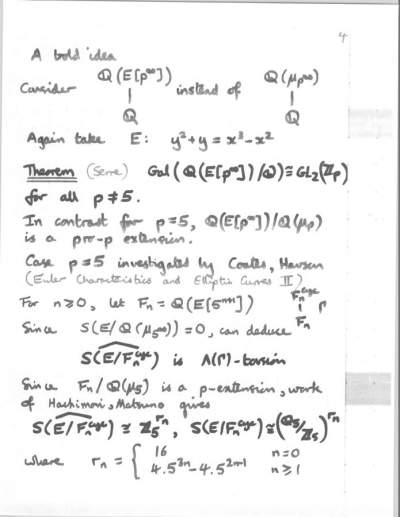 4
A bold idea
Consider Q(E[p^∞]) instead of Q(μ_p^∞)
| |
Q Q
Again take E: y²+y = x³-x²
Theorem (Serre) Gal(Q(E[p^∞])/Q) ≅ GL₂(Z_p)
for all p ≠ 5.
In contrast for p=5, Q(E[p^∞])/Q(μ_p)
is a pro-p extension.
Case p=5 investigated by Coates, Howson
(Euler Characteristics and Elliptic Curves II)
For n≥0, let F_n = Q(E[5^{n+1}]) F_n^{cyc} | Γ F_n
Since S(E/Q(μ_{5^∞})) = 0, can deduce
\widehat{S(E/F_n^{cyc})} is Λ(Γ)-torsion
Since F_n/Q(μ_5) is a p-extension, work
of Hachimori, Matsuno gives
\widehat{S(E/F_n^{cyc})} ≅ Z_5^{r_n}, S(E/F_n^{cyc}) ≅ (Q_5/Z_5)^{r_n}
where r_n = { 16 n=0
4.5^{3n} - 4.5^{2n-1} n≥1